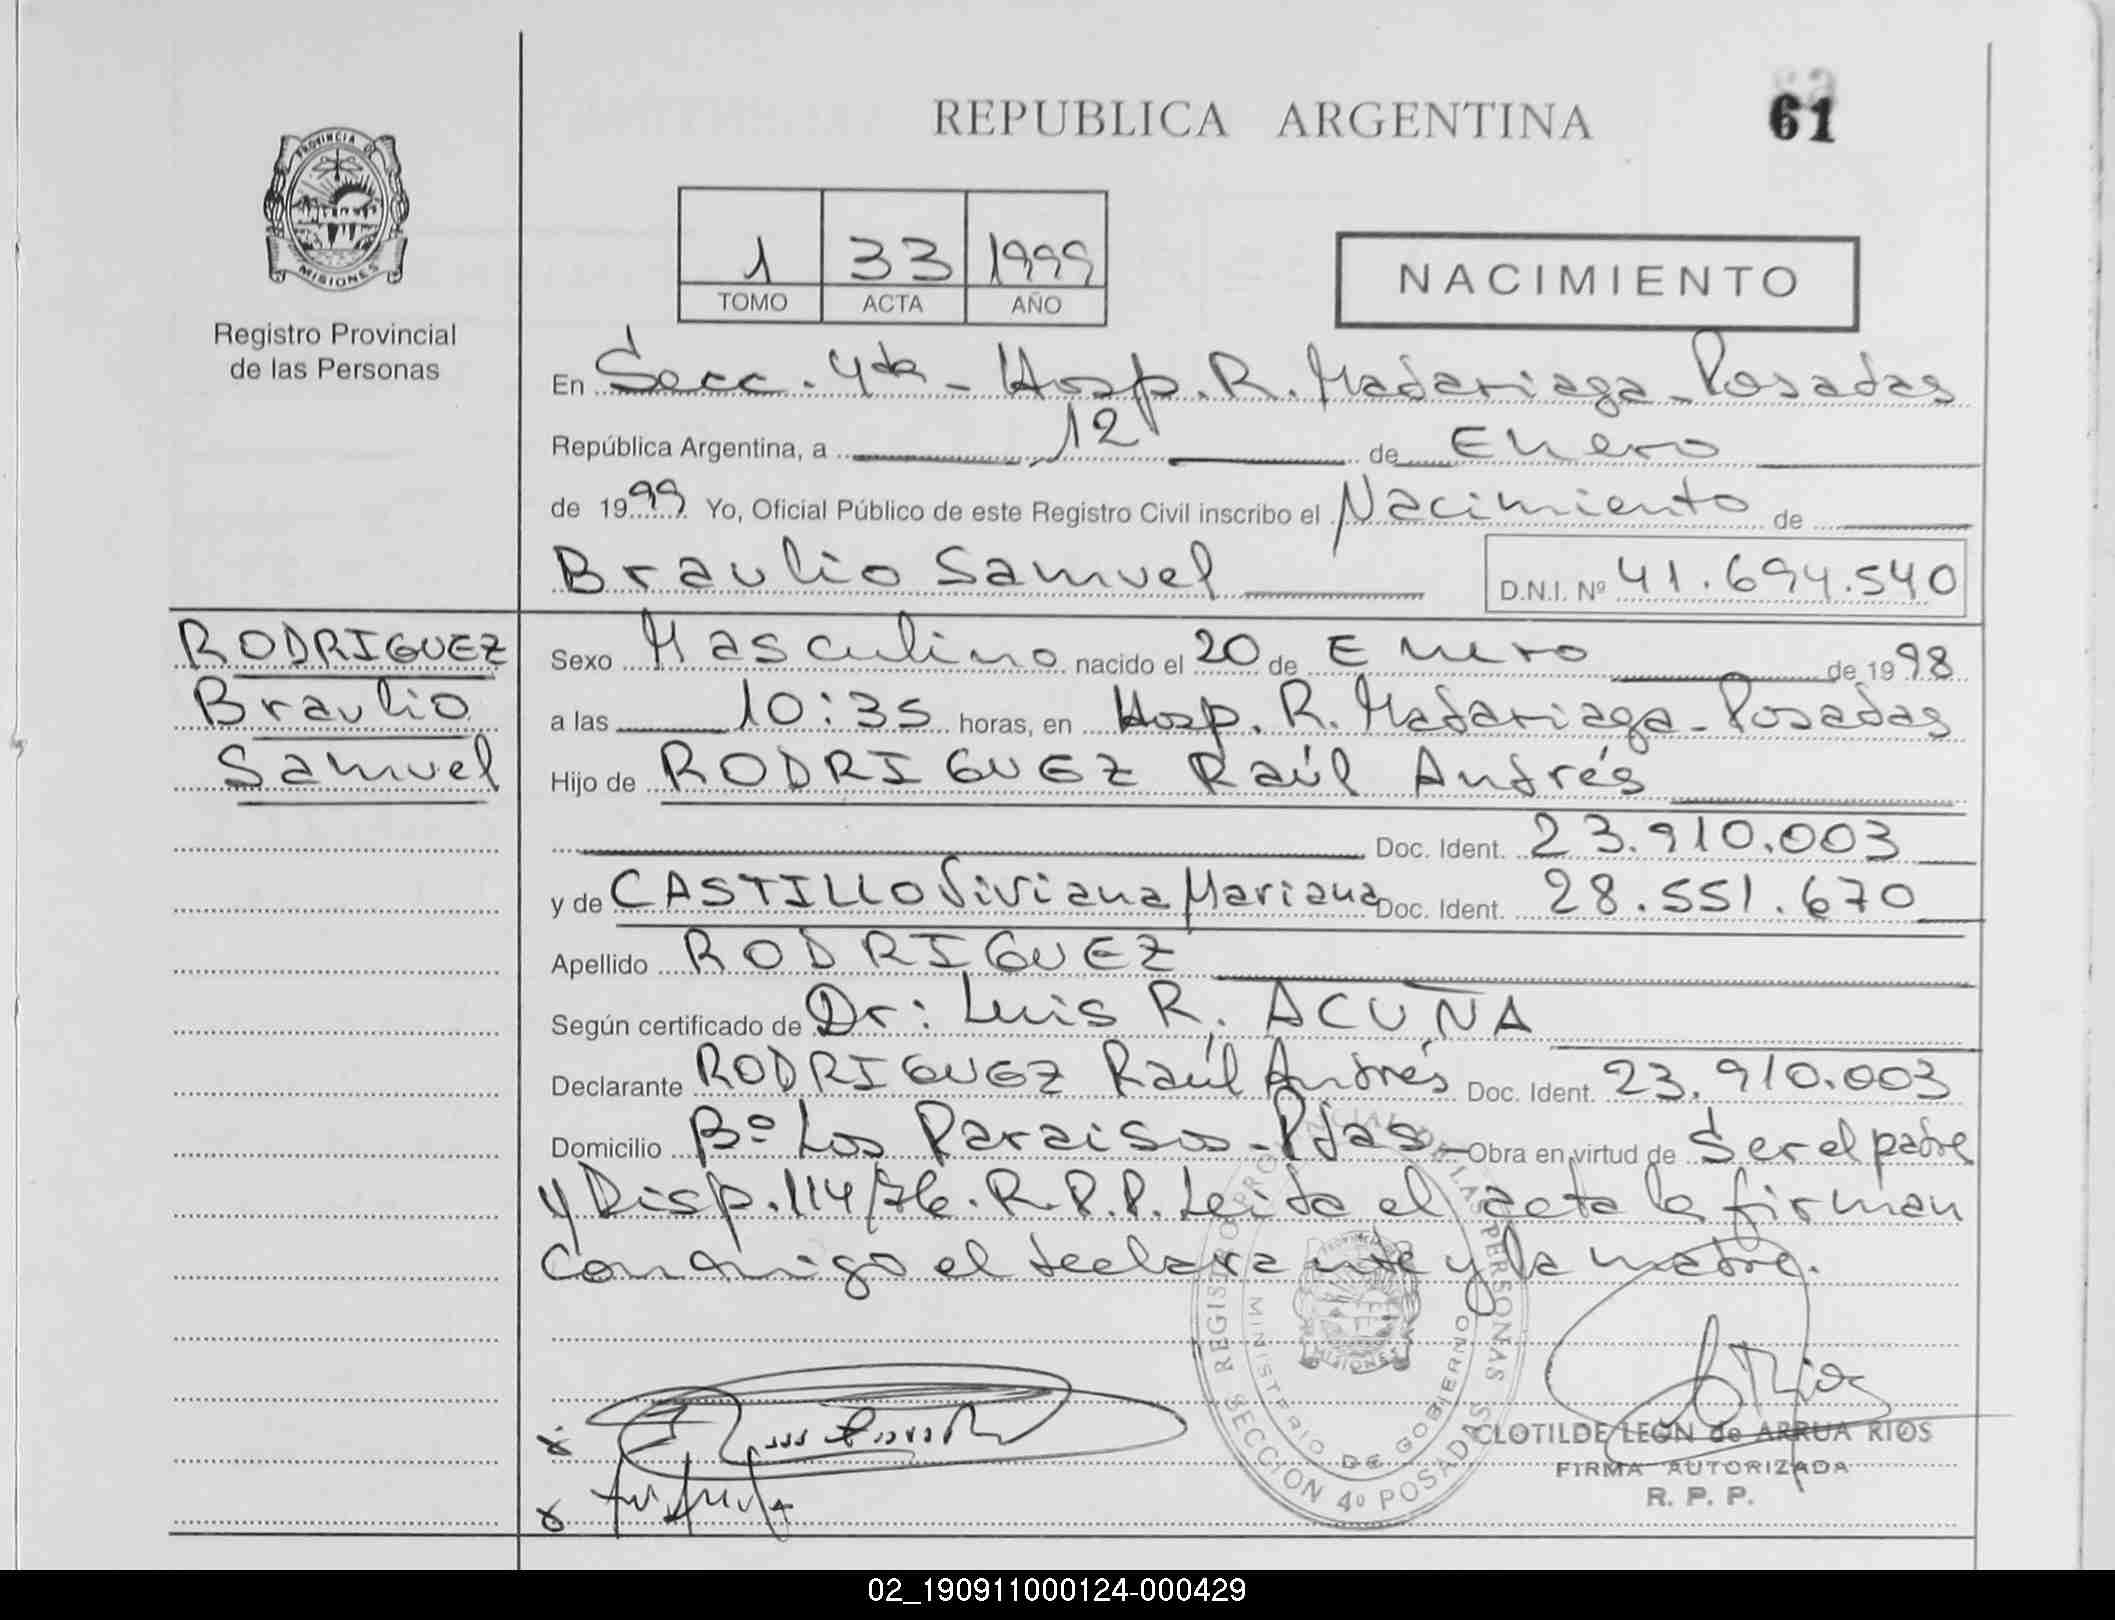 REPUBLICA ARGENTINA
61
PROVINCIA DE
MISIONES
Registro Provincial
de las Personas
1 33 1999
TOMO ACTA AÑO
NACIMIENTO
En Secc. 4ta - Hosp. R. Madariaga - Posadas
República Argentina, a 12 de Enero
de 1999 Yo, Oficial Público de este Registro Civil inscribo el Nacimiento de
Braulio Samuel D.N.I. Nº 41.694.540
RODRIGUEZ
Braulio
Samuel
Sexo Masculino nacido el 20 de Enero de 1998
a las 10:35 horas, en Hosp. R. Madariaga - Posadas
Hijo de RODRIGUEZ Raúl Andrés
Doc. Ident. 23.910.003
y de CASTILLO Viviana Mariana Doc. Ident. 28.551.670
Apellido RODRIGUEZ
Según certificado de Dr: Luis R. ACUÑA
Declarante RODRIGUEZ Raúl Andrés Doc. Ident. 23.910.003
Domicilio Bº Los Paraisos - Pdas - Obra en virtud de Ser el padre
y Disp. 114/76. R.P.P. Leida el acta la firman
conmigo el declarante y la madre.
REGISTRO PROVINCIAL DE LAS PERSONAS
MINISTERIO DE GOBIERNO
MISIONES
SECCION 4º POSADAS
CLOTILDE LEÓN de ARRUA RIOS
FIRMA AUTORIZADA
R. P. P.
02_190911000124-000429